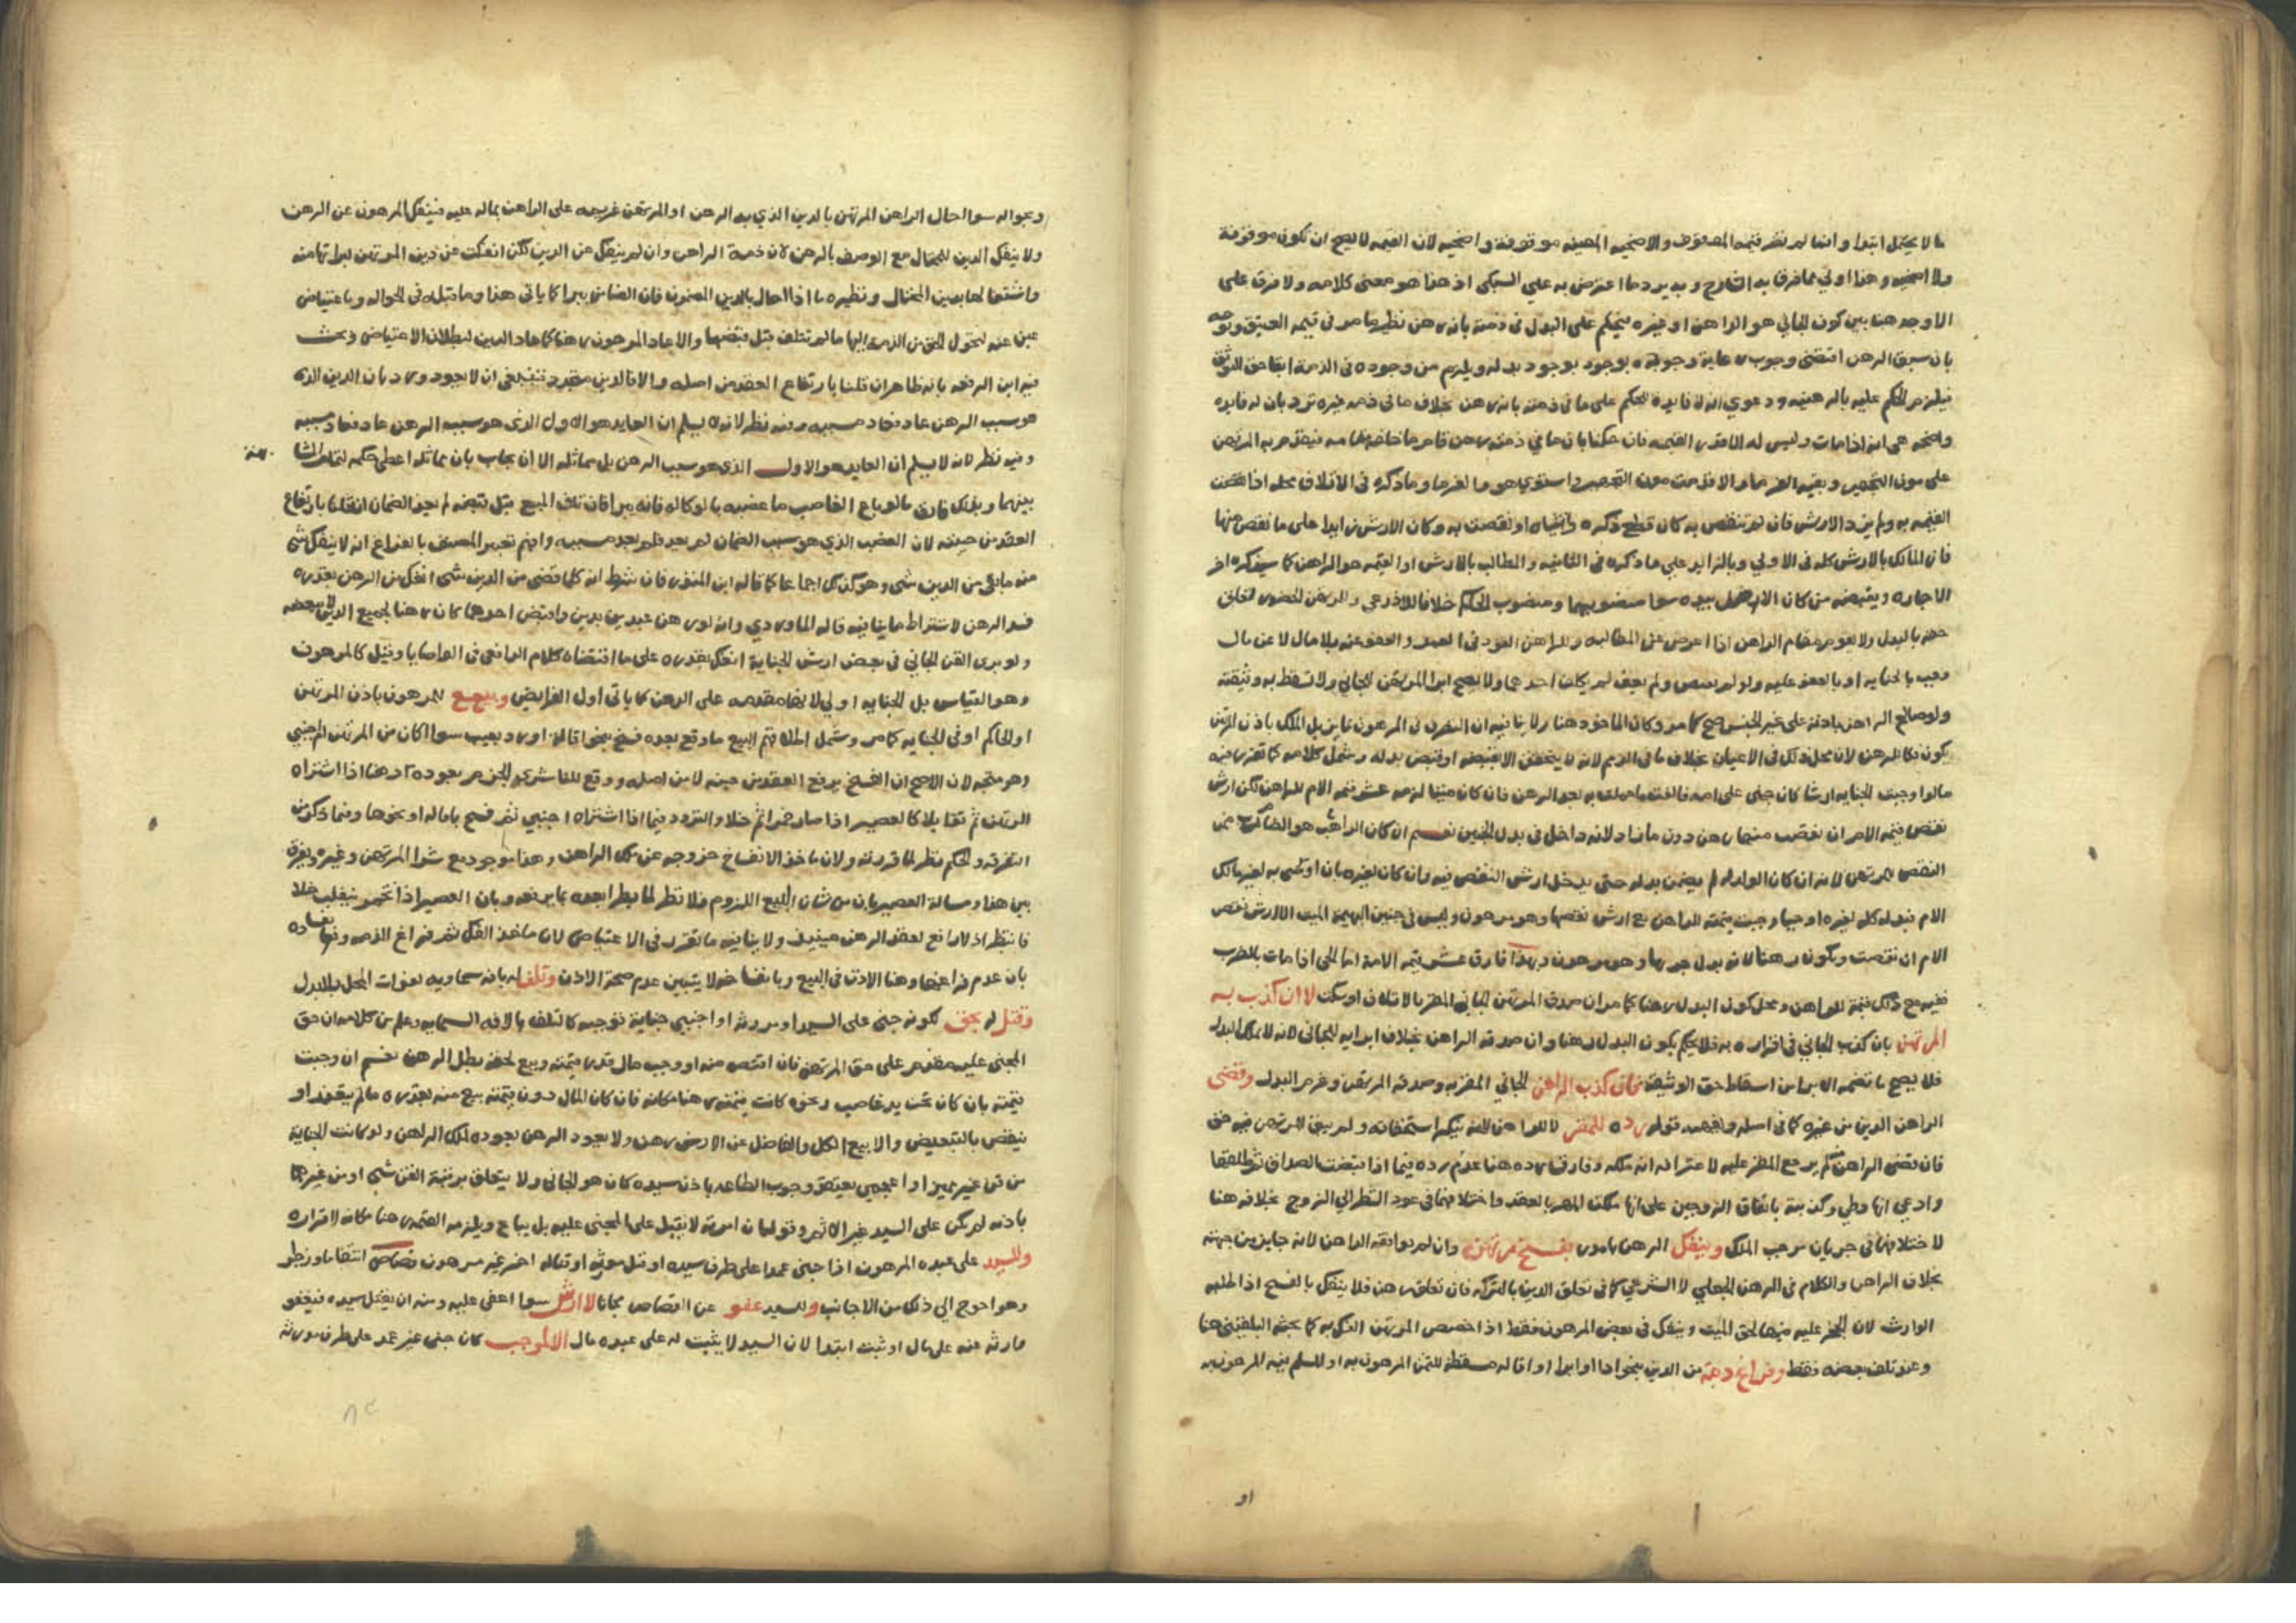 ما لا يحتمل ابتدا وانما لم تصر قيمة الموقوف والاضحيه المعينه موقوفة واضحيه لان القيمه لا يصح ان تكون موقوفة
ولا اضحيه وهذا اولي مما فرق به الشارح وبه يرد ما اعترض به علي السبكي اذ هذا هو معنى كلامه ولا فرق على
الاوجه هنا بين كون الجاني هو الراهن او غيره فيحكم على البدل في ذمته بانه رهن نظير ما مر في قيمه العتيق
بان سبق الرهن اقتضى وجوب رعاية وجوده بوجود بدله ويلزم من وجوده في الذمة ابقا حق التوثق
فيلزم الحكم عليه بالرهنيه ودعوي انه لا فايدة للحكم على ما في ذمته بانه رهن بخلاف ما في ذمه غيره ترد بان له فايده
واضحه هي انه اذا مات وليس له الا قدر القيمه فان حكمنا بان ما في ذمته رهن قام ما خلفه مقامه فيقدم به المرتهن
على مون التجهيز وبقيه الغرما والا قدمت مون التجهيز واستوي هو والغرما وما ذكره في الاتلاف محله اذا اقتضت
القيمه به ولم يزد الارش فان لم تنقص به كان قطع ذكره وانثياه او نقصت به وكان الارش زايدا على ما نقص منها
فاز المالك بالارش كله في الاولي وبالزايد علي ما ذكره في الثانيه والمطالب بالارش او القيمه هو الراهن كما سيذكره اخر
الاجاره ويقبضه من كان الاصل بيده سوا منصوبهما ومنصوب الحاكم خلافا للاذرعي وللمرتهن الحضور لتعلق
حقه بالبدل ولا يقوم مقام الراهن اذا اعرض عن المطالبه وللراهن القود في العمد والعفو عنه بلا مال لا عن مال
وجب بالجنايه او بالعفو عليه ولو لم يقتص ولم يعف لم يكلف احدهما ولا يصح ابرا المرتهن الجاني ولا تسقط به وثيقته
ولو صالح الراهن باذنه على غير الجنس صح كما مر وكان الماخوذ هنا ولا ينافيه ان التصرف في المرهون بما يزيل الملك باذن المرتهن
يكون فكا للرهن لان محل ذلك في الاعيان بخلاف ما في الذمم لانه لا يتحقق الا بقبضه او قبض بدله وشمل كلامه كما تقرر فيه
ما لو اوجبت الجنايه ارشا كان جنى على امه فالقت ما حملت به بعد الرهن فان كان ميتا لزمه عشر قيمه الام للراهن لكن ارش
نقص قيمه الام ان نقصت منهما رهن دون ما زاد لانه داخل في بدل الجنين نعم ان كان الراهن هو الضارب
النقص للمرتهن لانه ان كان الولد له لم يضمن بدله حتى يدخل ارش النقص فيه وان كان لغيره بان اوصى به لغير مالك
الام فبدله كله لغيره او حيا وجبت قيمته للراهن مع ارش نقصها وهو مرهون وليس في جنين البهيمة الميت الا ارش نقص
الام ان نقصت ويكون رهنا لانه بدل جزيها وهو مرهون وبهذا فارق عشر قيمه الامة اما الحي اذا مات بالضرب
ففيه مع ذلك قيمة للراهن ومحل كون البدل رهنا كما مر ان صدق المرتهن الجاني المقر بالاتلاف او سكت لا ان كذب به
المرتهن بان كذب الجاني في اقراره به فلا يحكم بكون البدل رهنا وان صدقه الراهن بخلاف ابرايه للجاني لانه لا يملك البدل
فلا يصح ما تضمنه الابرا من اسقاط حق الوثيقة فان كذب الراهن الجاني المقر به وصدقه المرتهن وغرم البدل وقضى
الراهن الدين من غيره كما في اصله ولفهمه من قوله رده للمقر لا للراهن لانه ينكر استحقاقه ولم يبق للمرتهن فيه حق
فان قضى الراهن منه لم يرجع المقر عليه لاعترافه انه ملكه وفارق رده هنا عدم رده فيما اذا قبضت الصداق ثم طلقها
وادعي انه وطي وكذبته باتفاق الزوجين على انها ملكت المهر بالعقد واختلافهما في عود الشطر الي الزوج بخلافه هنا
لاختلافهما في جريان موجب الملك وينفك الرهن بامور بفسخ مرتهن وان لم يوافقه الراهن لانه جايز من جهته
بخلاف الراهن والكلام في الرهن الجعلي لا الشرعي كما في تعلق الدين بالتركه فان تعلق رهن فلا ينفك بالفسخ اذا طلبه
الوارث لان الحجر عليه فيها لحق الميت وينفك في بعض المرهون فقط اذا خصص المرتهن الفك به كما بحثه البلقيني هنا
وعند تلف بعضه فقط وفراغ ذمة من الدين بنحو ادا او ابرا او اقاله مسقطة للثمن المرهون به او للمسلم فيه المرهون به
او
وبحواله سوا احال الراهن المرتهن بالدين الذي به الرهن او المرتهن غريمه على الراهن بماله عليه فينفك المرهون عن الرهن
ولا ينفك الدين للمحتال مع الوصف بالرهن لان ذمة الراهن وان لم ينفك عن الدين لكن انفكت عن دين المرتهن لبراتها منه
واشتغالها بدين المحتال ونظيره ما اذا احال بالدين المضمون فان الضامن يبرا كما ياتي هذا وما قبله في الحواله وباعتياض
عين عنه لتحول الحق من الذمة اليها ما لم تتلف قبل قبضها والا عاد المرهون رهنا كما عاد الدين لبطلان الاعتياض وبحث
فيه ابن الرفعه بانه ظاهر ان قلنا بارتفاع العقد من اصله والا فالدين متجدد فينبغي ان لا يعود ورد بان الدين الذي
هو سبب الرهن عاد فعاد مسببه وفيه نظر لانه لا يسلم ان العايد هو الاول الذي هو سبب الرهن عاد فعاد مسببه
وفيه نظر لانه لا يسلم ان العايد هو الاول الذي هو سبب الرهن بل مماثله الا ان يجاب بان مماثله اعطي حكمه
بينهما وبذلك فارق ما لو باع الغاصب ما غصبه بالوكاله فانه يبرا فان تلف المبيع قبل قبضه لم يعد الضمان ان قلنا بارتفاع
العقد من حينه لان الغصب الذي هو سبب الضمان لم يعد فلم يعد مسببه وافهم تعبير المصنف بالفراغ انه لا ينفك شي
منه ما بقي من الدين شي وهو كذلك اجماعا كما قاله ابن المنذر فان شرط انه كلما قضى من الدين شيا انفك من الرهن بقدره
فسد الرهن لاشتراط ما ينافيه قاله الماوردي وانه لو رهن عبدين بدين واقبض احدهما كان رهنا لجميع الدين
ولو بري القن الجاني في بعض ارش الجناية انفك بقدره على ما اقتضاه كلام الرافعي في الوصايا وقيل كالمرهون
وهو القياس بل الجنايه اولي لانها مقدمه على الرهن كما ياتي اول الفرايض وببيع للمرهون باذن المرتهن
او للحاكم او في الجنايه كما مر وشمل اطلاقهم البيع ما وقع بعده فسخ بنحو اقالة او رد بعيب سوا اكان من المرتهن ام اجنبي
وهو متجه لان الاصح ان الفسخ يرفع العقد من حينه لا من اصله ووقع للفاشري الجزم بعوده رهنا اذا اشتراه
المرتهن ثم تقايلا كالعصير اذا صار خمرا ثم خلا والتردد فيما اذا اشتراه اجنبي ثم فسخ باقاله او نحوها وفيما ذكره من
التفرقه والحكم نظر لما قررته ولان ماخذ الانفساخ خروجه عن ملك الراهن وهذا موجود مع شرا المرتهن وغيره ويفرق
بين هذا ومسالة العصير بان من شان البيع اللزوم فلا نظر لما يطرا بعده مما يرفعه وبان العصير اذا تخمر ينقلب خلا
فانتظر اذ لا رافع لعقد الرهن حينيذ ولا ينافيه ما تقرر في الاعتياض لان ماخذ الفك ثم فراغ الذمه
بان عدم فراغها وهنا الاذن في البيع وبالفسخ لا يتبين عدم صحة الاذن وتلفه بافه سماويه لفوات المحل بلا بدل
وقتل له بحق لكونه جنى على السيد او مورثه او اجنبي جناية توجبه كالتلفه بالافه السماويه وعلم من كلامه ان حق
المجنى عليه مقدم على حق المرتهن فان اقتص منه او وجب مال قدر قيمته وبيع لحقه بطل الرهن نعم ان وجبت
قيمته بان كان تحت يد غاصب ونحوه كانت قيمته رهنا مكانه فان كان المال دون قيمته بيع منه بقدره ما لم يتعذر او
ينقص بالتبعيض والا بيع الكل والفاضل عن الارش رهن ولا يعود الرهن بعوده لملك الراهن ولو كانت الجناية
من قن غير مميز او اعجمي يعتقد وجوب الطاعه باذن سيده كان هو الجاني ولا يتعلق برقبة القن شي او من غيرهما
باذنه لم يكن على السيد غير الاثم وقوله انا امرته لا يقبل على المجنى عليه بل يباع ويلزمه القيمه رهنا مكانه لاقراره
وللسيد على عبده المرهون اذا جنى عمدا على طرف سيده او قتل مورثه او قتاله اخر غير مرهون قصاص انتقاما وزجرا
وهو احوج الي ذلك من الاجانب وللسيد عفو عن القصاص مجانا لا ارش سوا اعفى عليه ومنه ان يقتل سيده فيعفو
وارثه عنه على مال او ثبت ابتدا لان السيد لا يثبت له على عبده مال الا لموجب كان جنى غير عمد على طرف مورثه